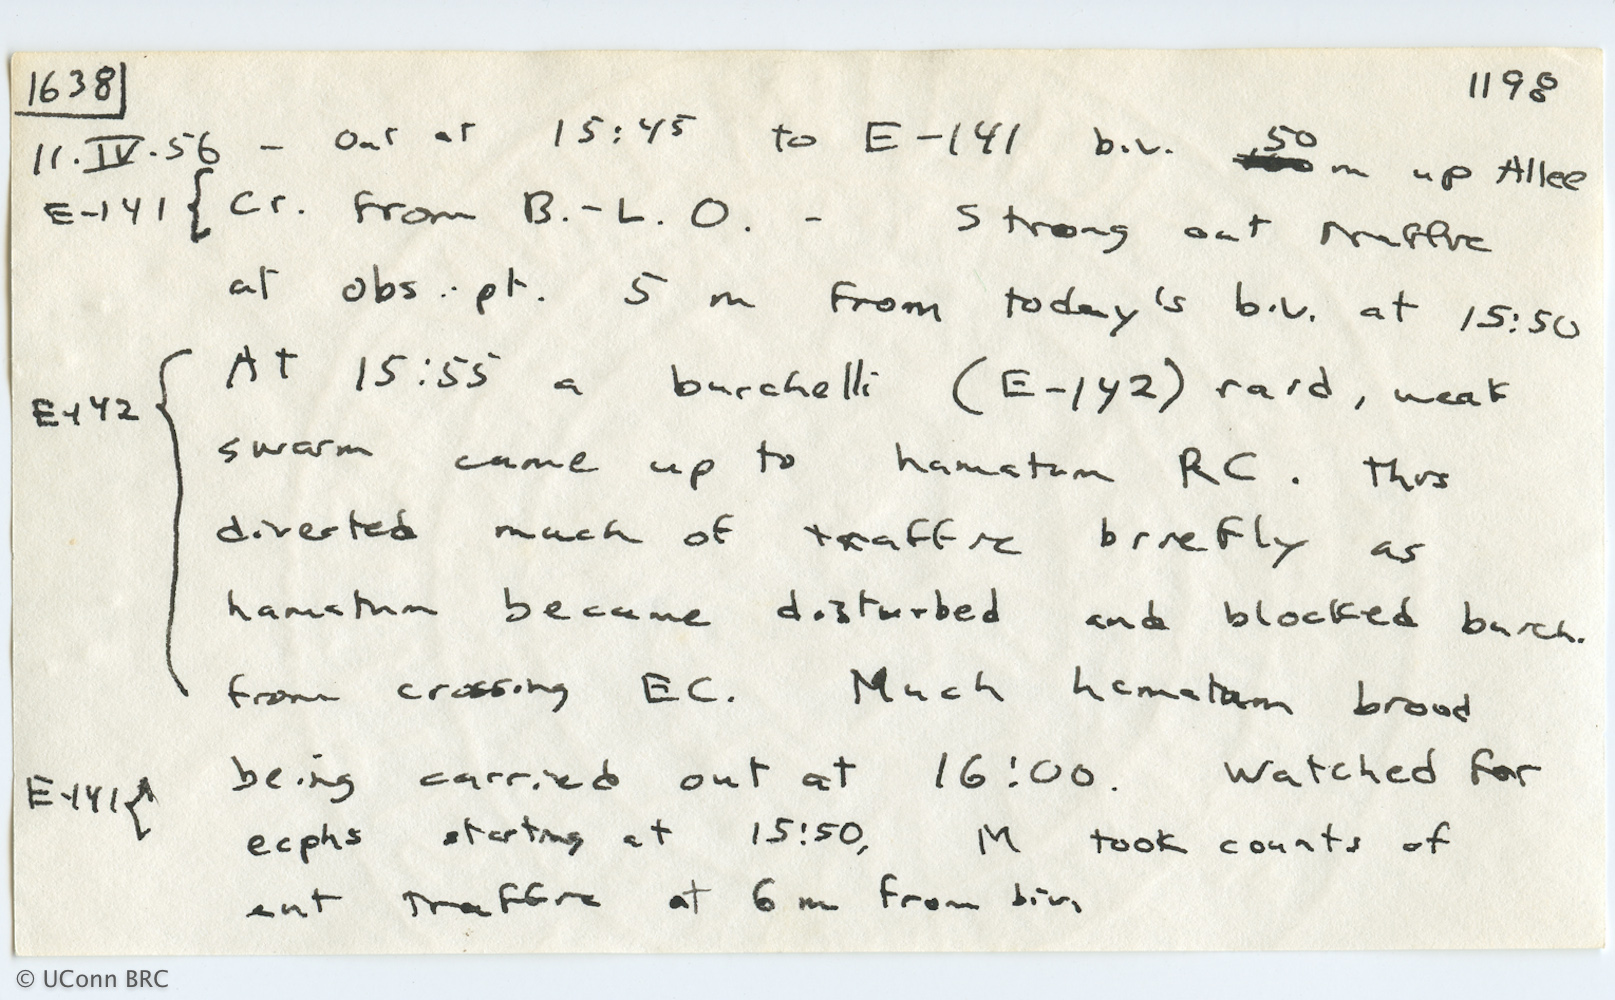 1638 1198
11.IV.56 - Out at 15:45 to E-141 biv. 50 m up Allee
E-141 { Cr. from B.-L. O. - Strong out traffic
at obs. pt. 5 m from today's biv. at 15:50
At 15:55 a burchelli (E-142) raid, weak
E-142 { swarm came up to hamatum RC. This
diverted much of traffic briefly as
hamatum became disturbed and blocked burch.
from crossing EC. Much hamatum brood
E-141 { being carried out at 16:00. Watched for
ecphs starting at 15:50, M took counts of
ant traffic at 6 m from biv.
© UConn BRC